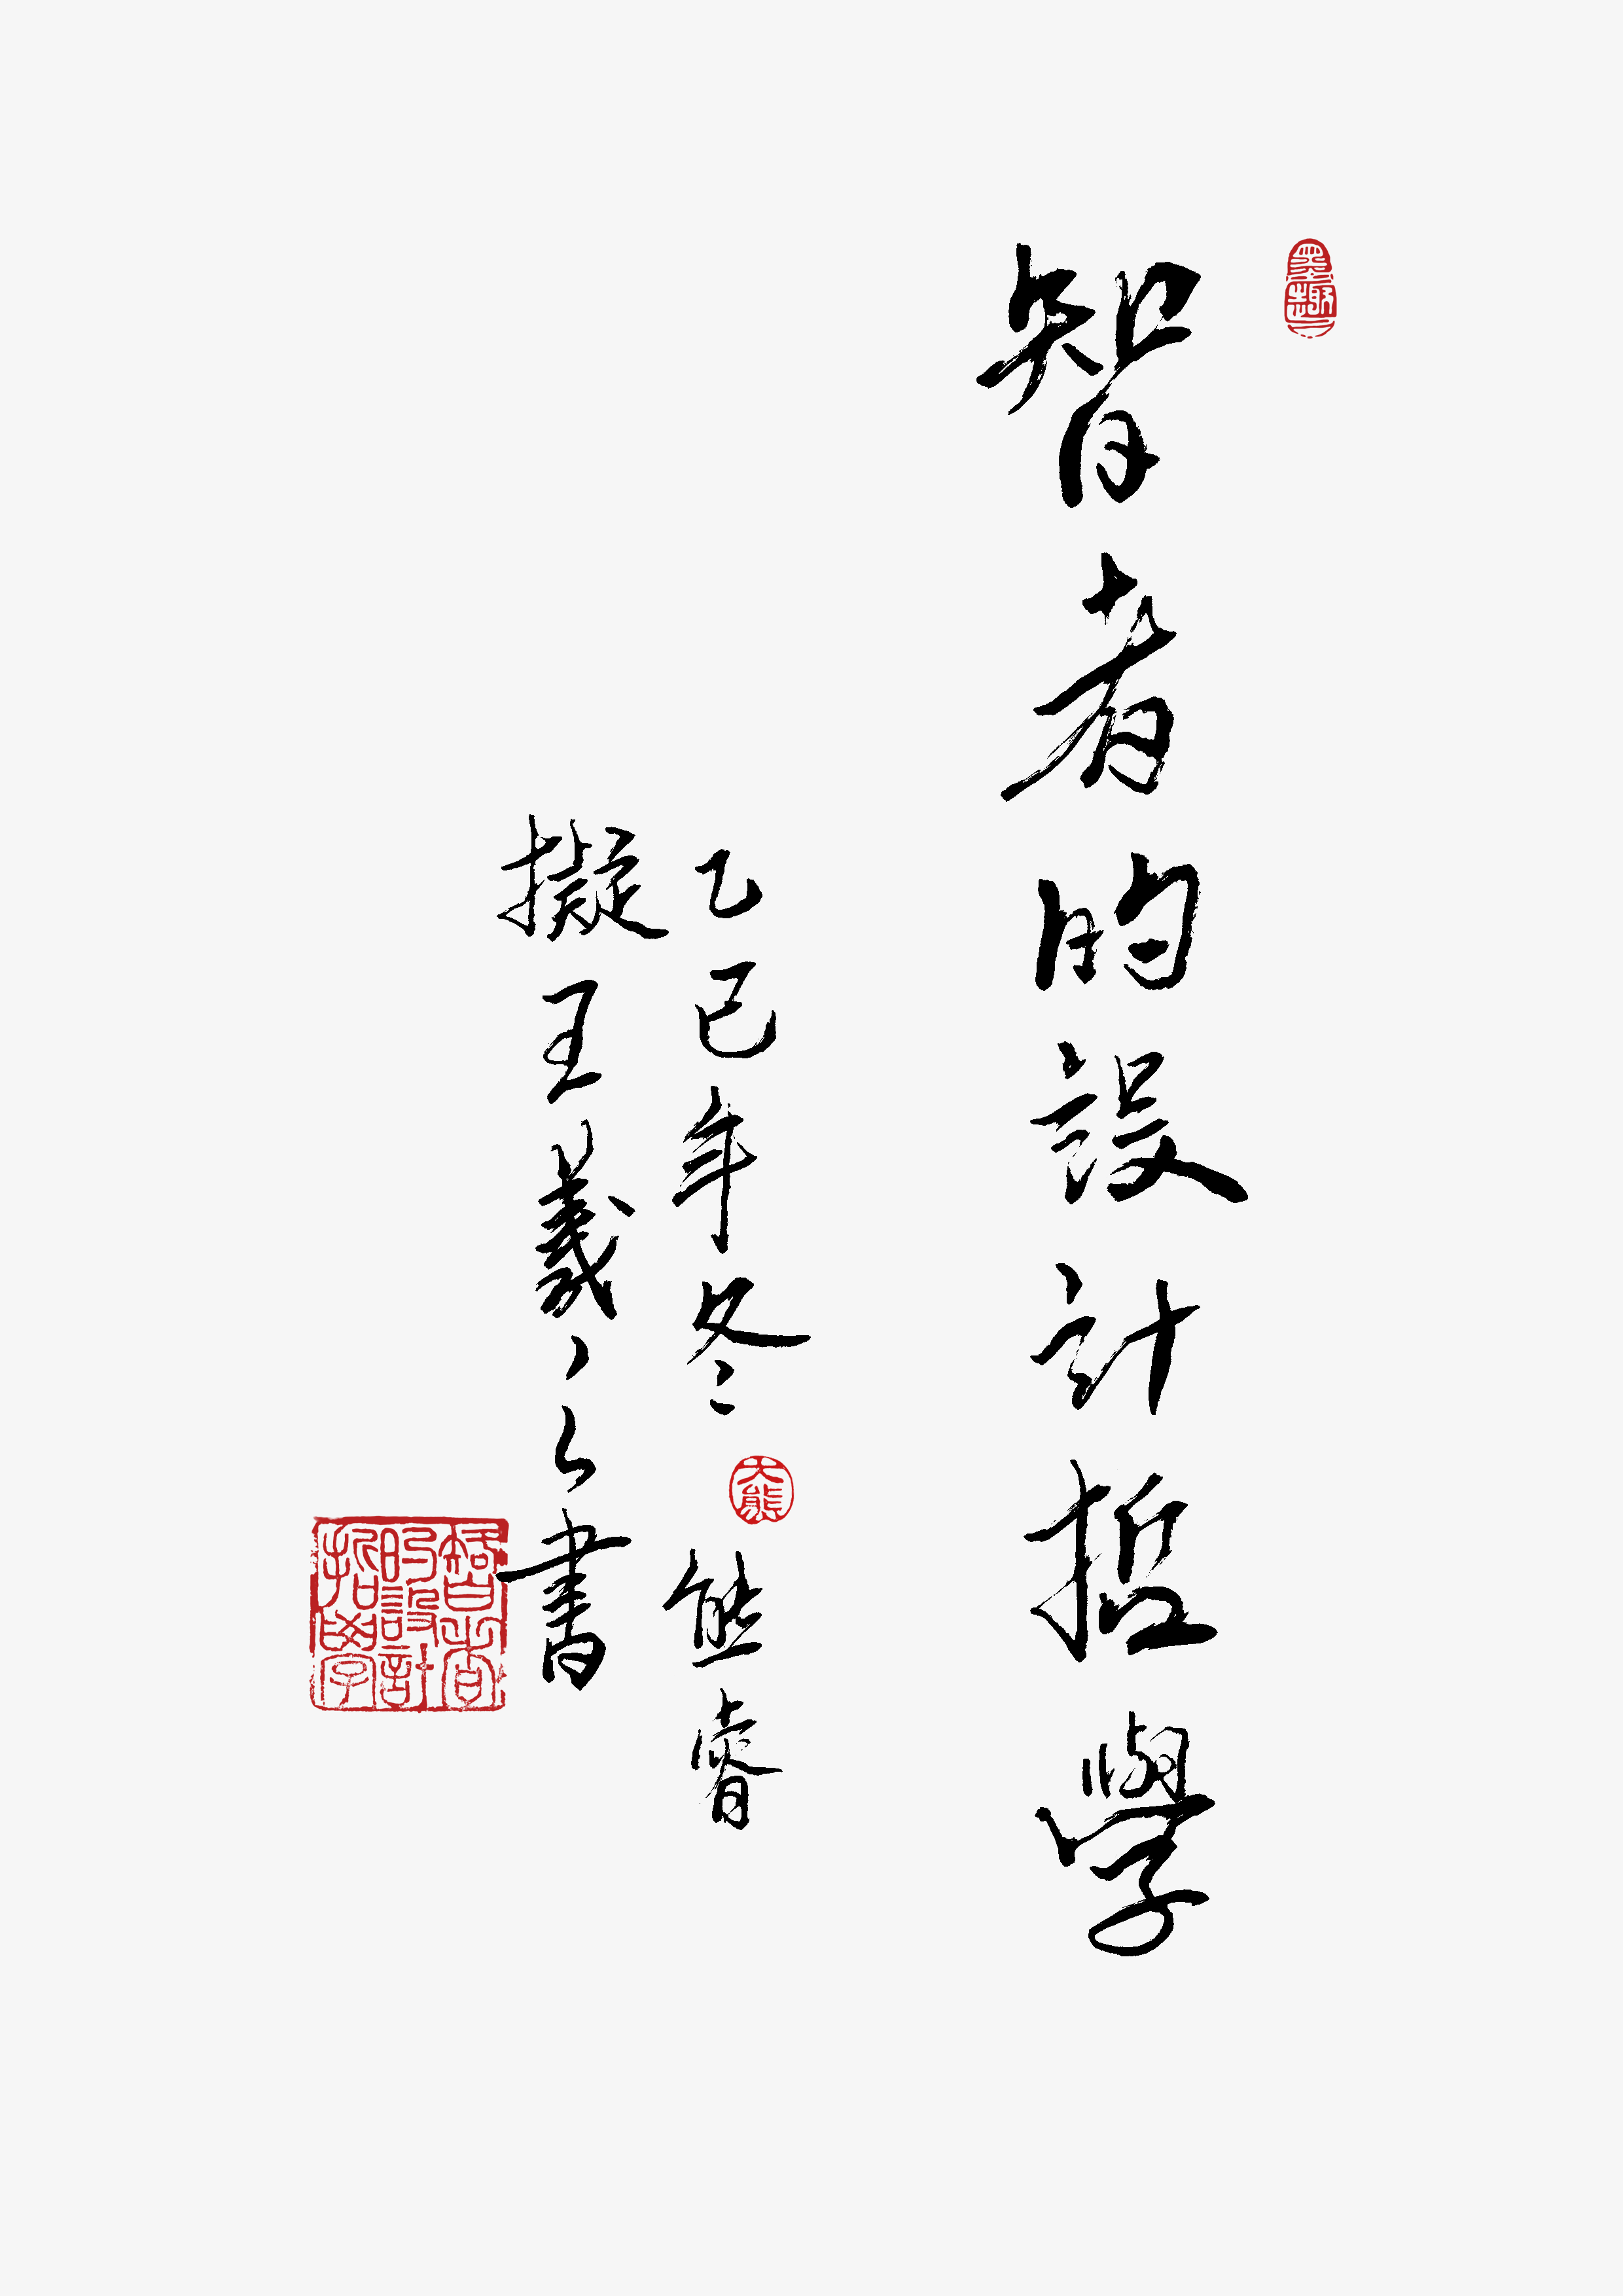 智者的設計哲學
乙巳年冬 熊睿
擬王羲之公書
墨趣
大熊
智者的設計哲學